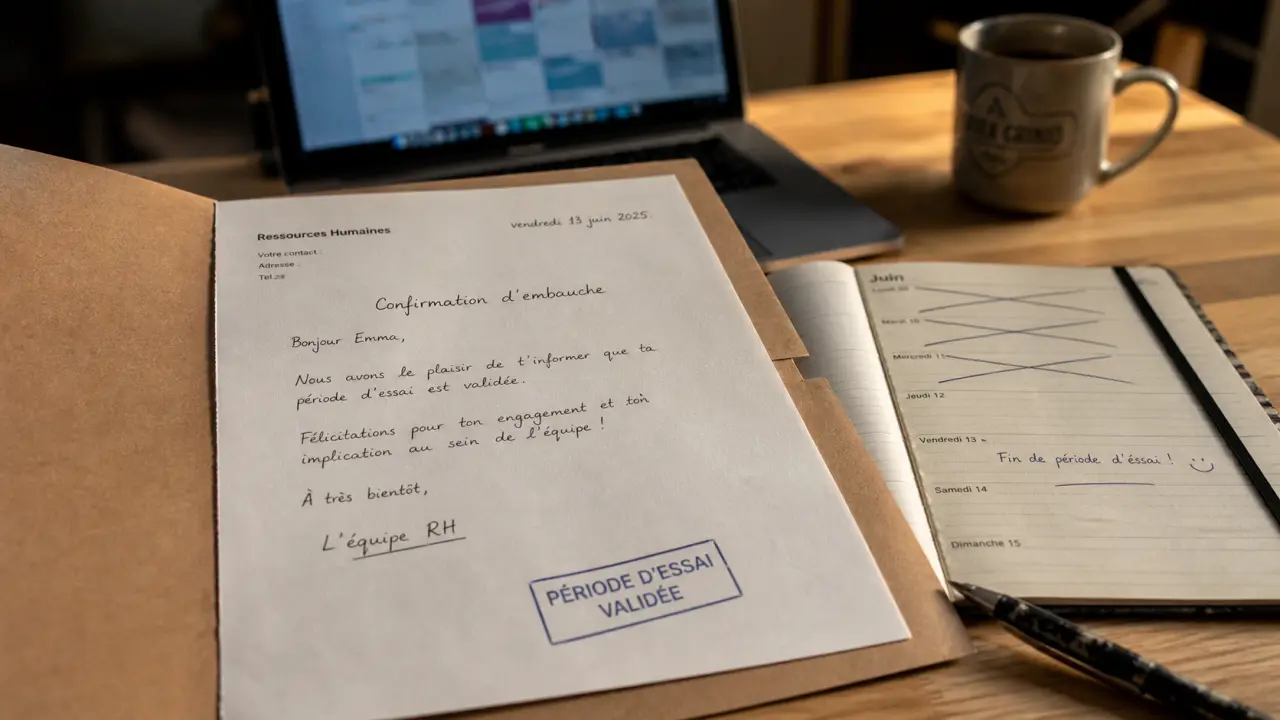 Ressources Humaines
vendredi 13 juin 2025
Votre contact :
Adresse :
Confirmation d'embauche
Bonjour Emma,
Nous avons le plaisir de t'informer que ta
période d'essai est validée.
Félicitations pour ton engagement et ton
implication au sein de l'équipe !
À très bientôt,
L'équipe RH
PÉRIODE D'ESSAI
VALIDÉE
Juin
Mardi 10
Mercredi 11
Jeudi 12
Vendredi 13
Fin de période d'éssai !
Samedi 14
Dimanche 15